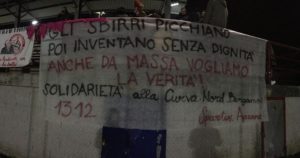 GLI SBIRRI PICCHIANO
POI INVENTANO SENZA DIGNITÀ
ANCHE DA MASSA VOGLIAMO
LA VERITÀ!
SOLIDARIETÀ alla Curva Nord Bergamo
1312